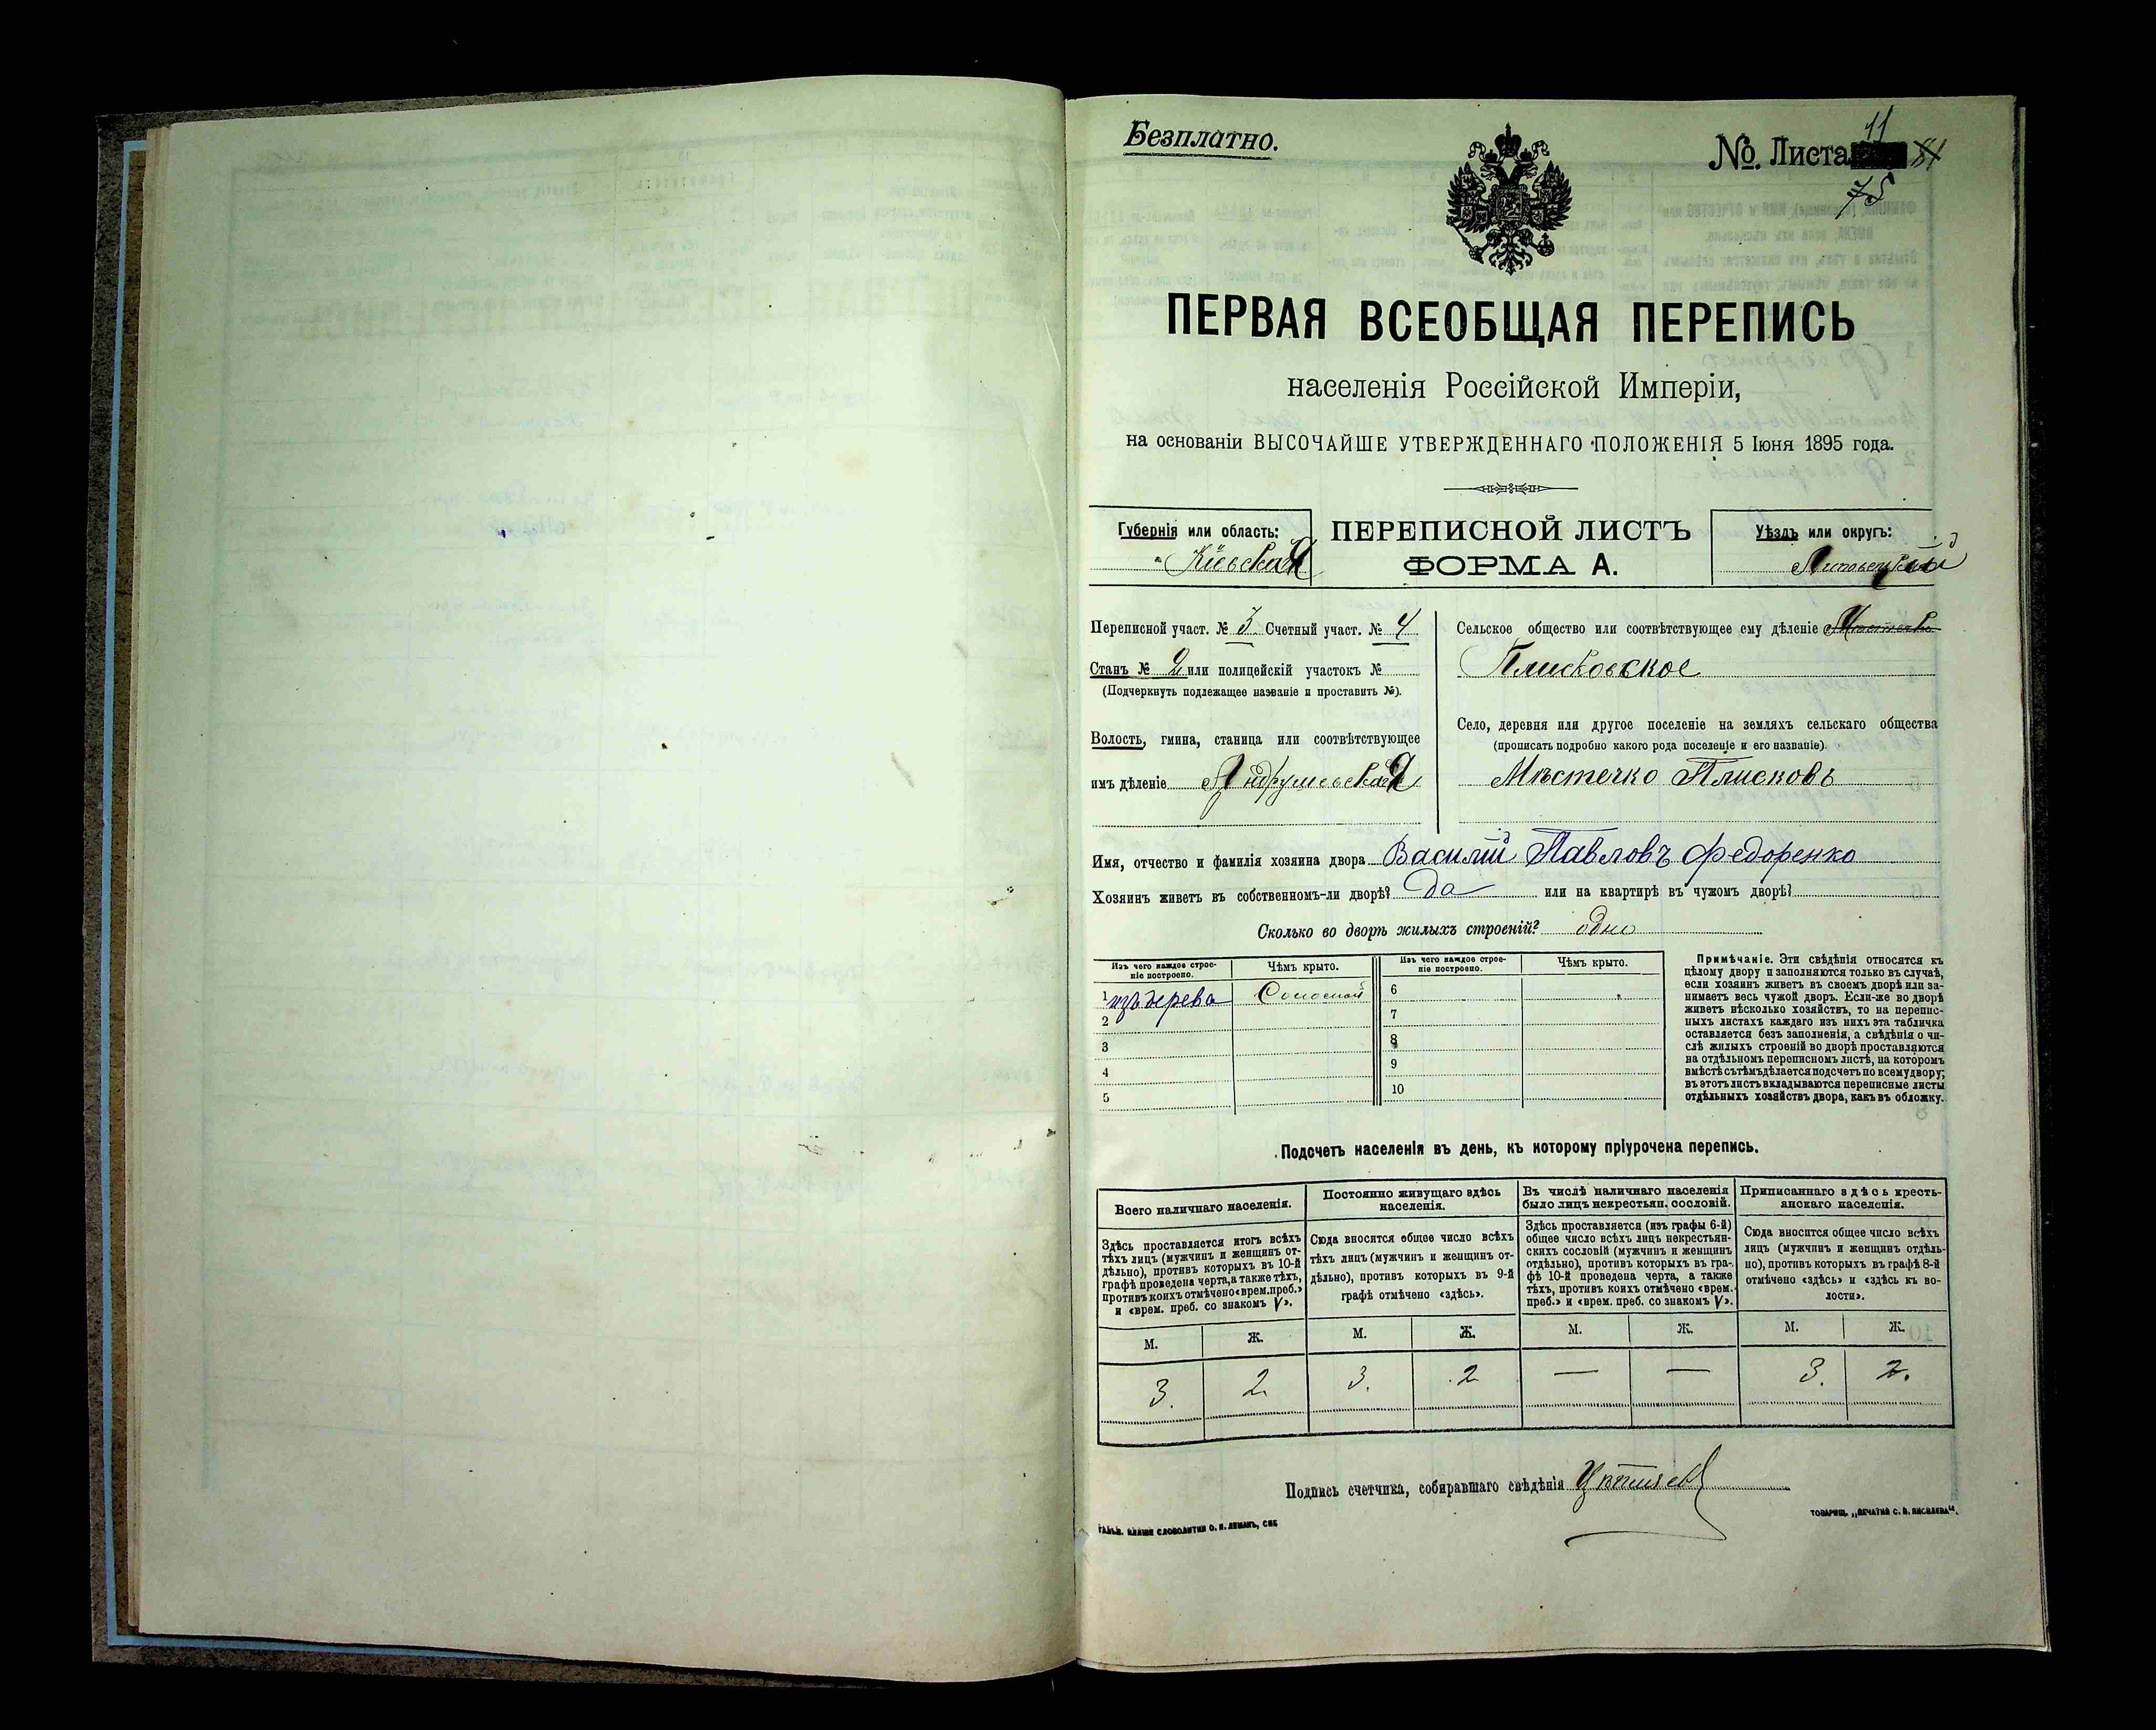 Безплатно.
№ Листа 11
75
ПЕРВАЯ ВСЕОБЩАЯ ПЕРЕПИСЬ
населенія Россійской Имперіи,
на основаніи ВЫСОЧАЙШЕ УТВЕРЖДЕННАГО ПОЛОЖЕНІЯ 5 Іюня 1895 года.
Губернія или область:
Кіевская
ПЕРЕПИСНОЙ ЛИСТЪ
ФОРМА А.
Уѣздъ или округъ:
Липовецкій
Переписной участ. № 3 Счетный участ. № 4
Станъ № 2 или полицейскій участокъ №
(Подчеркнуть подлежащее названіе и проставить №).
Волость, гмина, станица или соотвѣтствующее
имъ дѣленіе Андрушевская
Сельское общество или соотвѣтствующее ему дѣленіе
Плисковское
Село, деревня или другое поселеніе на земляхъ сельскаго общества
(прописать подробно какого рода поселеніе и его названіе).
Мѣстечко Плисковъ
Имя, отчество и фамилія хозяина двора Василій Павловъ Федоренко
Хозяинъ живетъ въ собственномъ-ли дворѣ? Да или на квартирѣ въ чужомъ дворѣ?
Сколько во дворѣ жилыхъ строеній? одно
Изъ чего каждое строе-
ніе построено.
Чѣмъ крыто.
Изъ чего каждое строе-
ніе построено.
Чѣмъ крыто.
1 изъ дерева Соломой
2
3
4
5
6
7
8
9
10
Примѣчаніе. Эти свѣдѣнія относятся къ
цѣлому двору и заполняются только въ случаѣ,
если хозяинъ живетъ въ своемъ дворѣ или за-
нимаетъ весь чужой дворъ. Если-же во дворѣ
живетъ нѣсколько хозяйствъ, то на перепис-
ныхъ листахъ каждаго изъ нихъ эта табличка
оставляется безъ заполненія, а свѣдѣнія о чи-
слѣ жилыхъ строеній во дворѣ проставляются
на отдѣльномъ переписномъ листѣ, на которомъ
вмѣстѣ съ тѣмъ дѣлается подсчетъ по всему двору;
въ этотъ листъ вкладываются переписные листы
отдѣльныхъ хозяйствъ двора, какъ въ обложку.
Подсчетъ населенія въ день, къ которому пріурочена перепись.
Всего наличнаго населенія.
Здѣсь проставляется итогъ всѣхъ
тѣхъ лицъ (мужчинъ и женщинъ от-
дѣльно), противъ которыхъ въ 10-й
графѣ проведена черта, а также тѣхъ,
противъ коихъ отмѣчено «врем. преб.»
и «врем. преб. со знакомъ V».
Постоянно живущаго здѣсь
населенія.
Сюда вносится общее число всѣхъ
тѣхъ лицъ (мужчинъ и женщинъ от-
дѣльно), противъ которыхъ въ 9-й
графѣ отмѣчено «здѣсь».
Въ числѣ наличнаго населенія
было лицъ некрестьян. сословій.
Здѣсь проставляется (изъ графы 6-й)
общее число всѣхъ лицъ некрестьян-
скихъ сословій (мужчинъ и женщинъ
отдѣльно), противъ которыхъ въ гра-
фѣ 10-й проведена черта, а также
тѣхъ, противъ коихъ отмѣчено «врем.
преб.» и «врем. преб. со знакомъ V».
Приписаннаго здѣсь кресть-
янскаго населенія.
Сюда вносится общее число всѣхъ
лицъ (мужчинъ и женщинъ отдѣль-
но), противъ которыхъ въ графѣ 8-й
отмѣчено «здѣсь» и «здѣсь къ во-
лости».
М. Ж. М. Ж. М. Ж. М. Ж.
3. 2 3. 2 — — 3. 2.
Подпись счетчика, собиравшаго свѣдѣнія
ГАЛЬВ. КЛИШЕ СЛОВОЛИТНИ О. И. ЛЕМАНЪ, СПБ
ТОВАРИЩ. „ПЕЧАТНЯ С. П. ЯКОВЛЕВА“.